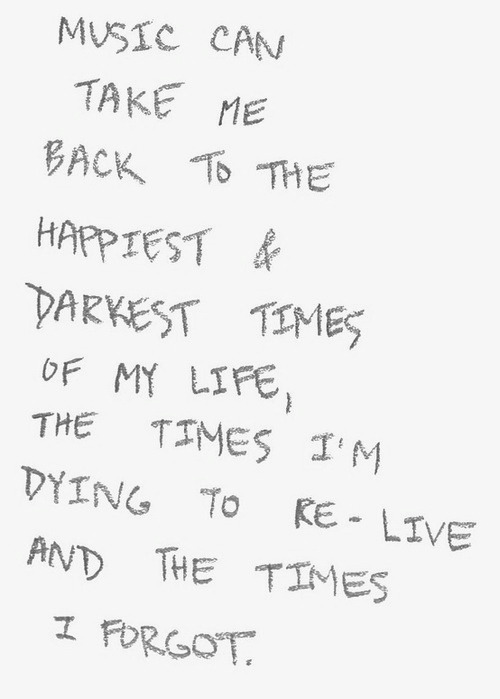 MUSIC CAN
TAKE ME
BACK TO THE
HAPPIEST &
DARKEST TIMES
OF MY LIFE,
THE TIMES I'M
DYING TO RE-LIVE
AND THE TIMES
I FORGOT.